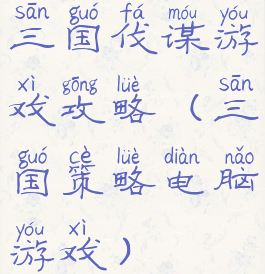 sān guó fá móu yóu
三国伐谋游
xì gōng lüè sān
戏攻略（三
guó cè lüè diàn nǎo
国策略电脑
yóu xì
游戏）